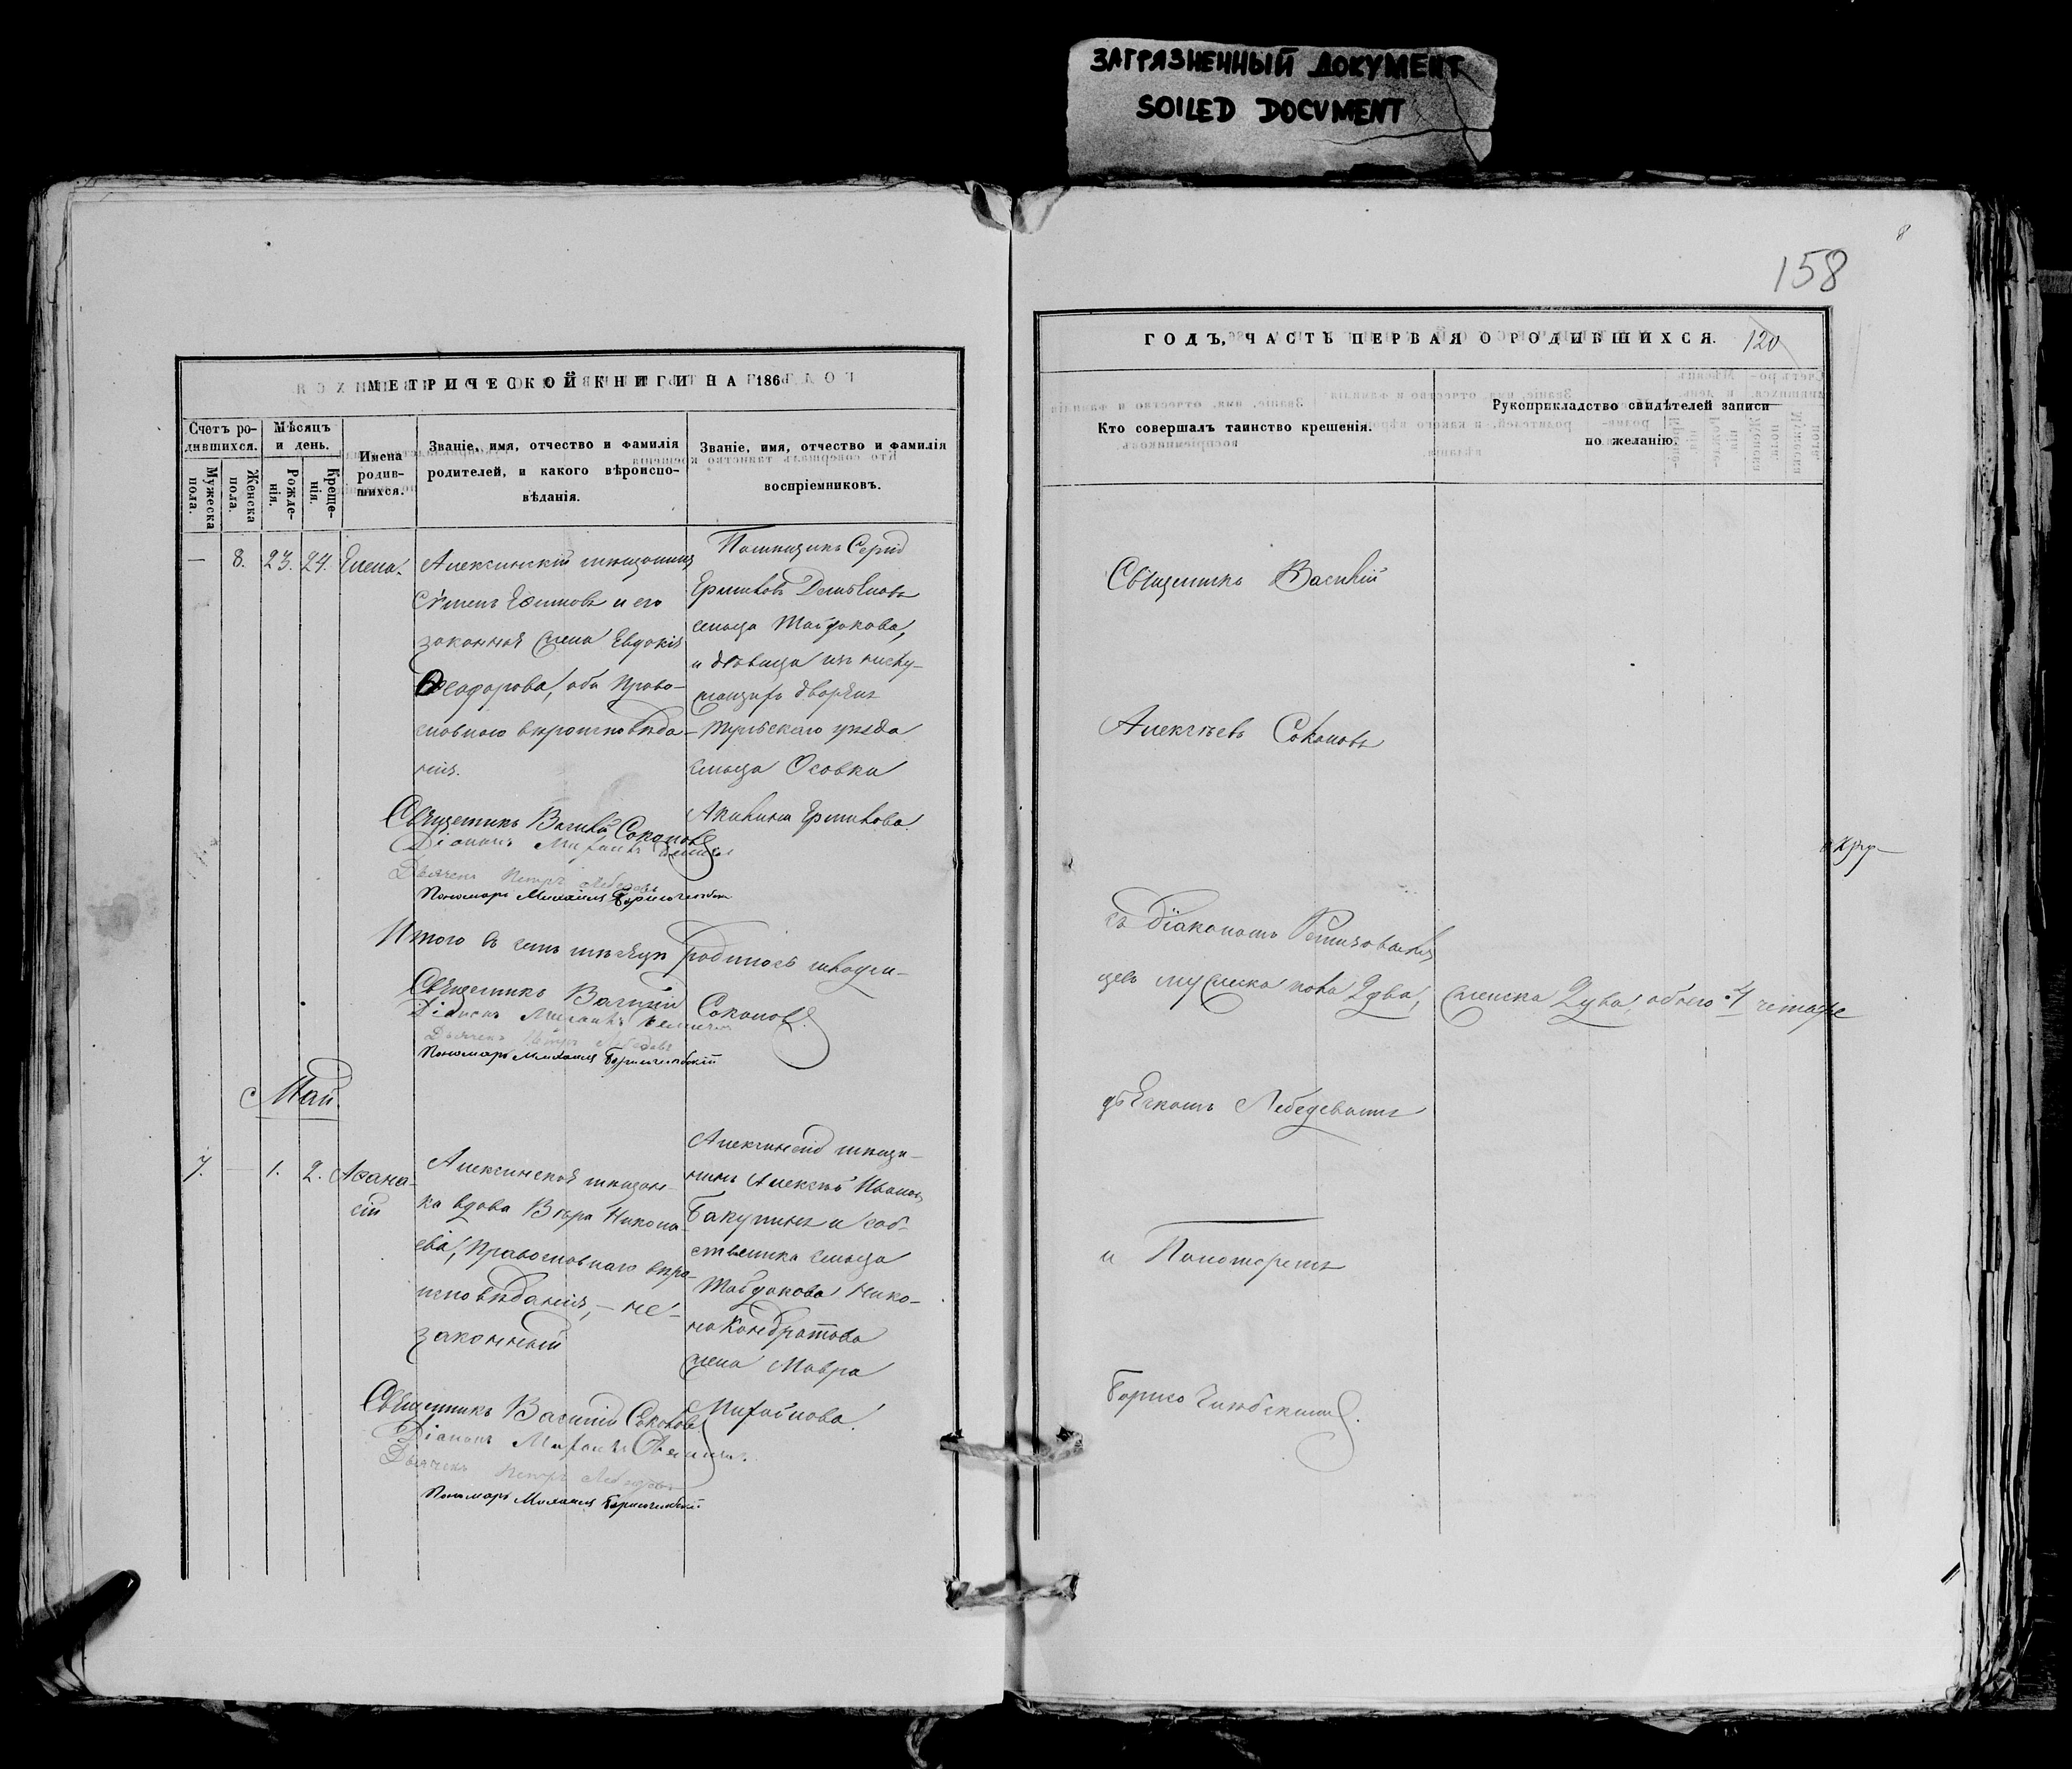 ЗАГРЯЗНЕННЫЙ ДОКУМЕНТ
SOILED DOCUMENT
МЕТРИЧЕСКОЙ КНИГИ НА 186
Счетъ ро-
дившихся.
Мужеска
пола.
Женска
пола.
Мѣсяцъ
и день.
Рожде-
нія.
Креще-
нія.
Имена
родив-
шихся.
Званіе, имя, отчество и фамилія
родителей, и какого вѣроиспо-
вѣданія.
Званіе, имя, отчество и фамилія
воспріемниковъ.
— 8. 23. 24. Елена.
Алексинскій мѣщанинъ
Симеонъ Ефимовъ и его
законная жена Евдокія
Ѳеодорова, оба право-
славнаго вѣроисповѣда-
нія.
Помѣщикъ Сергій
сельца
и дѣвица изъ
дворянъ
Тульскаго уѣзда
сельца Осовки
Акилина
Священникъ Василій Соколовъ
Діаконъ Михаилъ
Дьячекъ Петръ Лебедевъ
Пономарь Михаилъ
Итого въ семъ мѣсяцѣ родилось младен-
Священникъ Василій Соколовъ
Діаконъ Михаилъ
Дьячекъ Петръ Лебедевъ
Пономарь Михаилъ
Май.
7. — 1. 2. Аѳана-
сій
Алексинская мѣщан-
ка вдова Вѣра Никола-
ева, православнаго вѣро-
исповѣданія, — не-
законный
Алексинскій мѣща-
нинъ Алексѣй Ивановъ
Бакулинъ и соб-
ственника сельца
Нико-
на Кондратова
жена Мавра
Михайлова.
Священникъ Василій Соколовъ
Діаконъ Михаилъ
Дьячекъ Петръ Лебедевъ
Пономарь Михаилъ
158
ГОДЪ, ЧАСТЬ ПЕРВАЯ О РОДИВШИХСЯ. 120
Кто совершалъ таинство крещенія.
Рукоприкладство свидѣтелей записи
по желанію.
Священникъ Василій
Алексѣевъ Соколовъ
съ діакономъ
цевъ мужеска пола 2 два, женска 2 два, обоего 4 четыре
дьячкомъ Лебедевымъ
и Пономаремъ